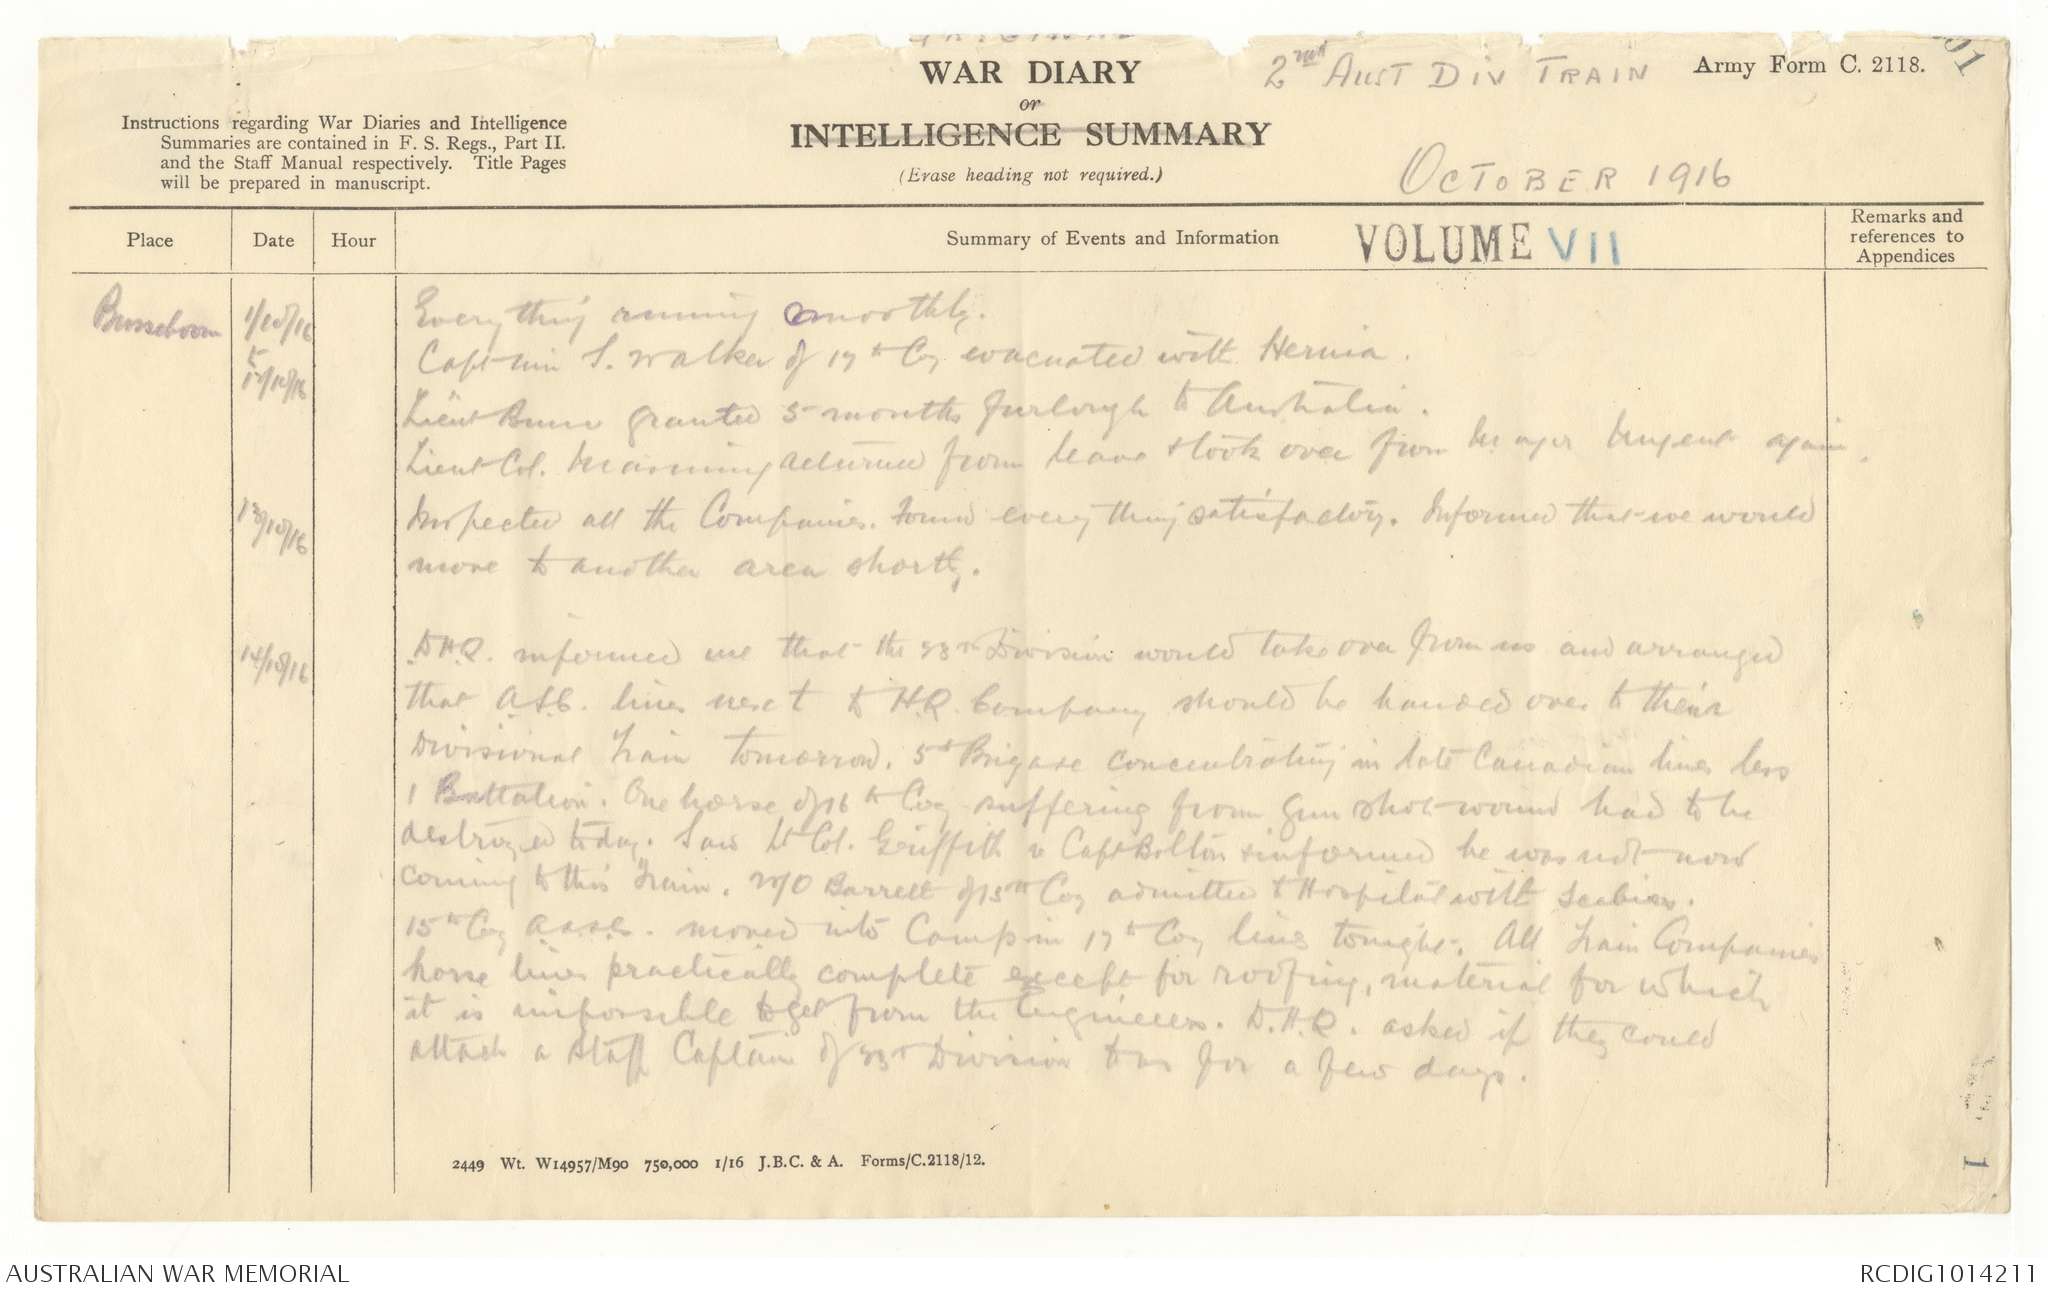 ORIGINAL
WAR DIARY
or
INTELLIGENCE SUMMARY
(Erase heading not required.)
2nd AUST DIV TRAIN
Army Form C. 2118.
Instructions regarding War Diaries and Intelligence
Summaries are contained in F. S. Regs., Part II.
and the Staff Manual respectively. Title Pages
will be prepared in manuscript.
OCTOBER 1916
Place
Date
Hour
Summary of Events and Information
VOLUME VII
Remarks and
references to
Appendices
Busseboom
1/10/16
Everything running smoothly.
Capt S. Walker of 17th Coy evacuated with Hernia.
5
12/10/16
Lieut granted 5 months furlough to Australia.
Lieut Col. Manning returned from leave & took over from Major Nugent again.
13/10/16
Inspected all the Companies. Found everything satisfactory. Informed that we would
move to another area shortly.
14/10/16
D.H.Q. informed me that the 23rd Division would take over from us and arranged
that A.S.C. lines next to H.Q. Company should be handed over to their
Divisional Train tomorrow. 5th Brigade concentrating in late Canadian lines less
1 Battalion. One horse of 16th Coy suffering from gun shot wound had to be
destroyed today. Saw Lt Col. Griffith v Capt Bolton & informed he was not now
coming to this Train. W/O Barrett of 15th Coy admitted to Hospital with Scabies.
15th Coy A.A.S.C. moved into Camp in 17th Coy lines tonight. All Train Companies
horse lines practically complete except for roofing, material for which
it is impossible to get from the Engineers. D.H.Q. asked if they could
attach a Staff Captain of 23rd Division to us for a few days.
2449 Wt. W14957/M90 750,000 1/16 J.B.C. & A. Forms/C.2118/12.
AUSTRALIAN WAR MEMORIAL
RCDIG1014211